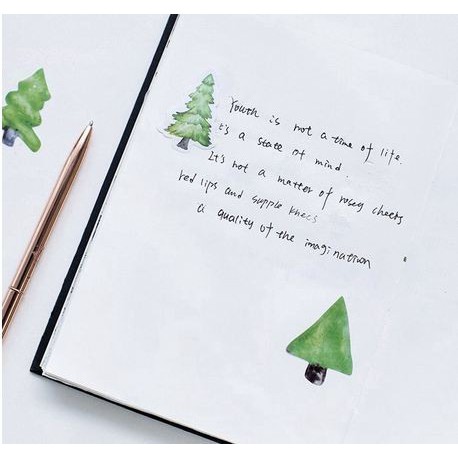 Youth is not a time of life.
t's a state of mind.
It's not a matter of rosey cheeks
red lips and supple knees
a quality of the imagination